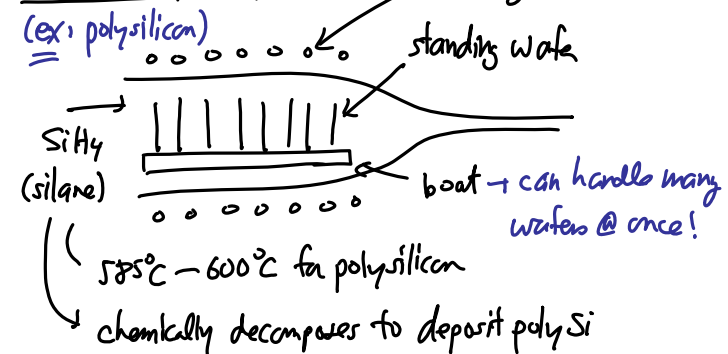 (ex, polysilicon)
standing wafer
SiH4
(silane)
boat → can handle many
wafers @ once!
585°C – 600°C for polysilicon
chemically decomposes to deposit poly Si